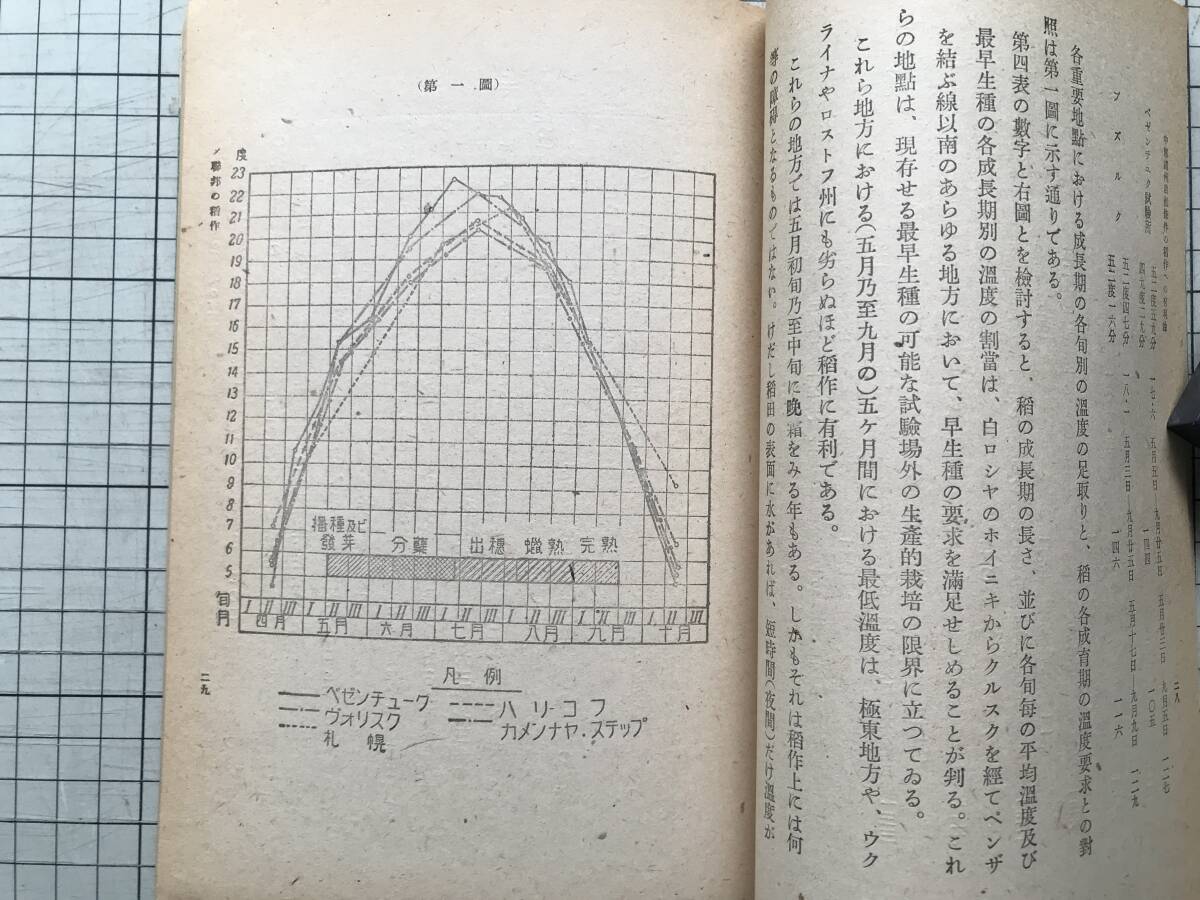 二八
ベゼンチュク試驗所 五二度五九分 一七・六 五月五日—九月廿五日 一四四 五月廿三日 九月五日 一〇五 一二七
四九度二九分
五二度四七分 一八・一 五月三日—九月廿五日 一四六 五月十七日—九月九日 一一六 一二九
五二度一六分
各重要地點における成長期の各旬別の溫度の足取りと、稻の各成育期の溫度要求との對
照は第一圖に示す通りである。
第四表の數字と右圖とを檢討すると、稻の成長期の長さ、並びに各旬每の平均溫度及び
最早生種の各成長期別の溫度の割當は、白ロシヤのホイニキからクルスクを經てペンザ
を結ぶ線以南のあらゆる地方において、早生種の要求を滿足せしめることが判る。これ
らの地點は、現存せる最早生種の可能な試驗場外の生產的栽培の限界に立つてゐる。
これら地方における(五月乃至九月の)五ケ月間における最低溫度は、極東地方や、ウク
ライナやロストフ州にも劣らぬほど稻作に有利である。
これらの地方では五月初旬乃至中旬に晩霜をみる年もある。しかもそれは稻作上には何
等の障碍となるものではない。けだし稻田の表面に水があれば、短時間(夜間)だけ溫度が
(第一圖)
ソ聯邦の稻作
二九
度
23
22
21
20
19
18
17
16
15
14
13
12
11
10
9
8
7
6
5
播種及ビ
發芽 分蘖 出穗 蠟熟 完熟
旬 I II III I II III I II III I II III I II III I II III I II III
月 四月 五月 六月 七月 八月 九月 十月
凡例
ベゼンチューク
ヴォリスク
札幌
ハリコフ
カメンナヤ・ステップ